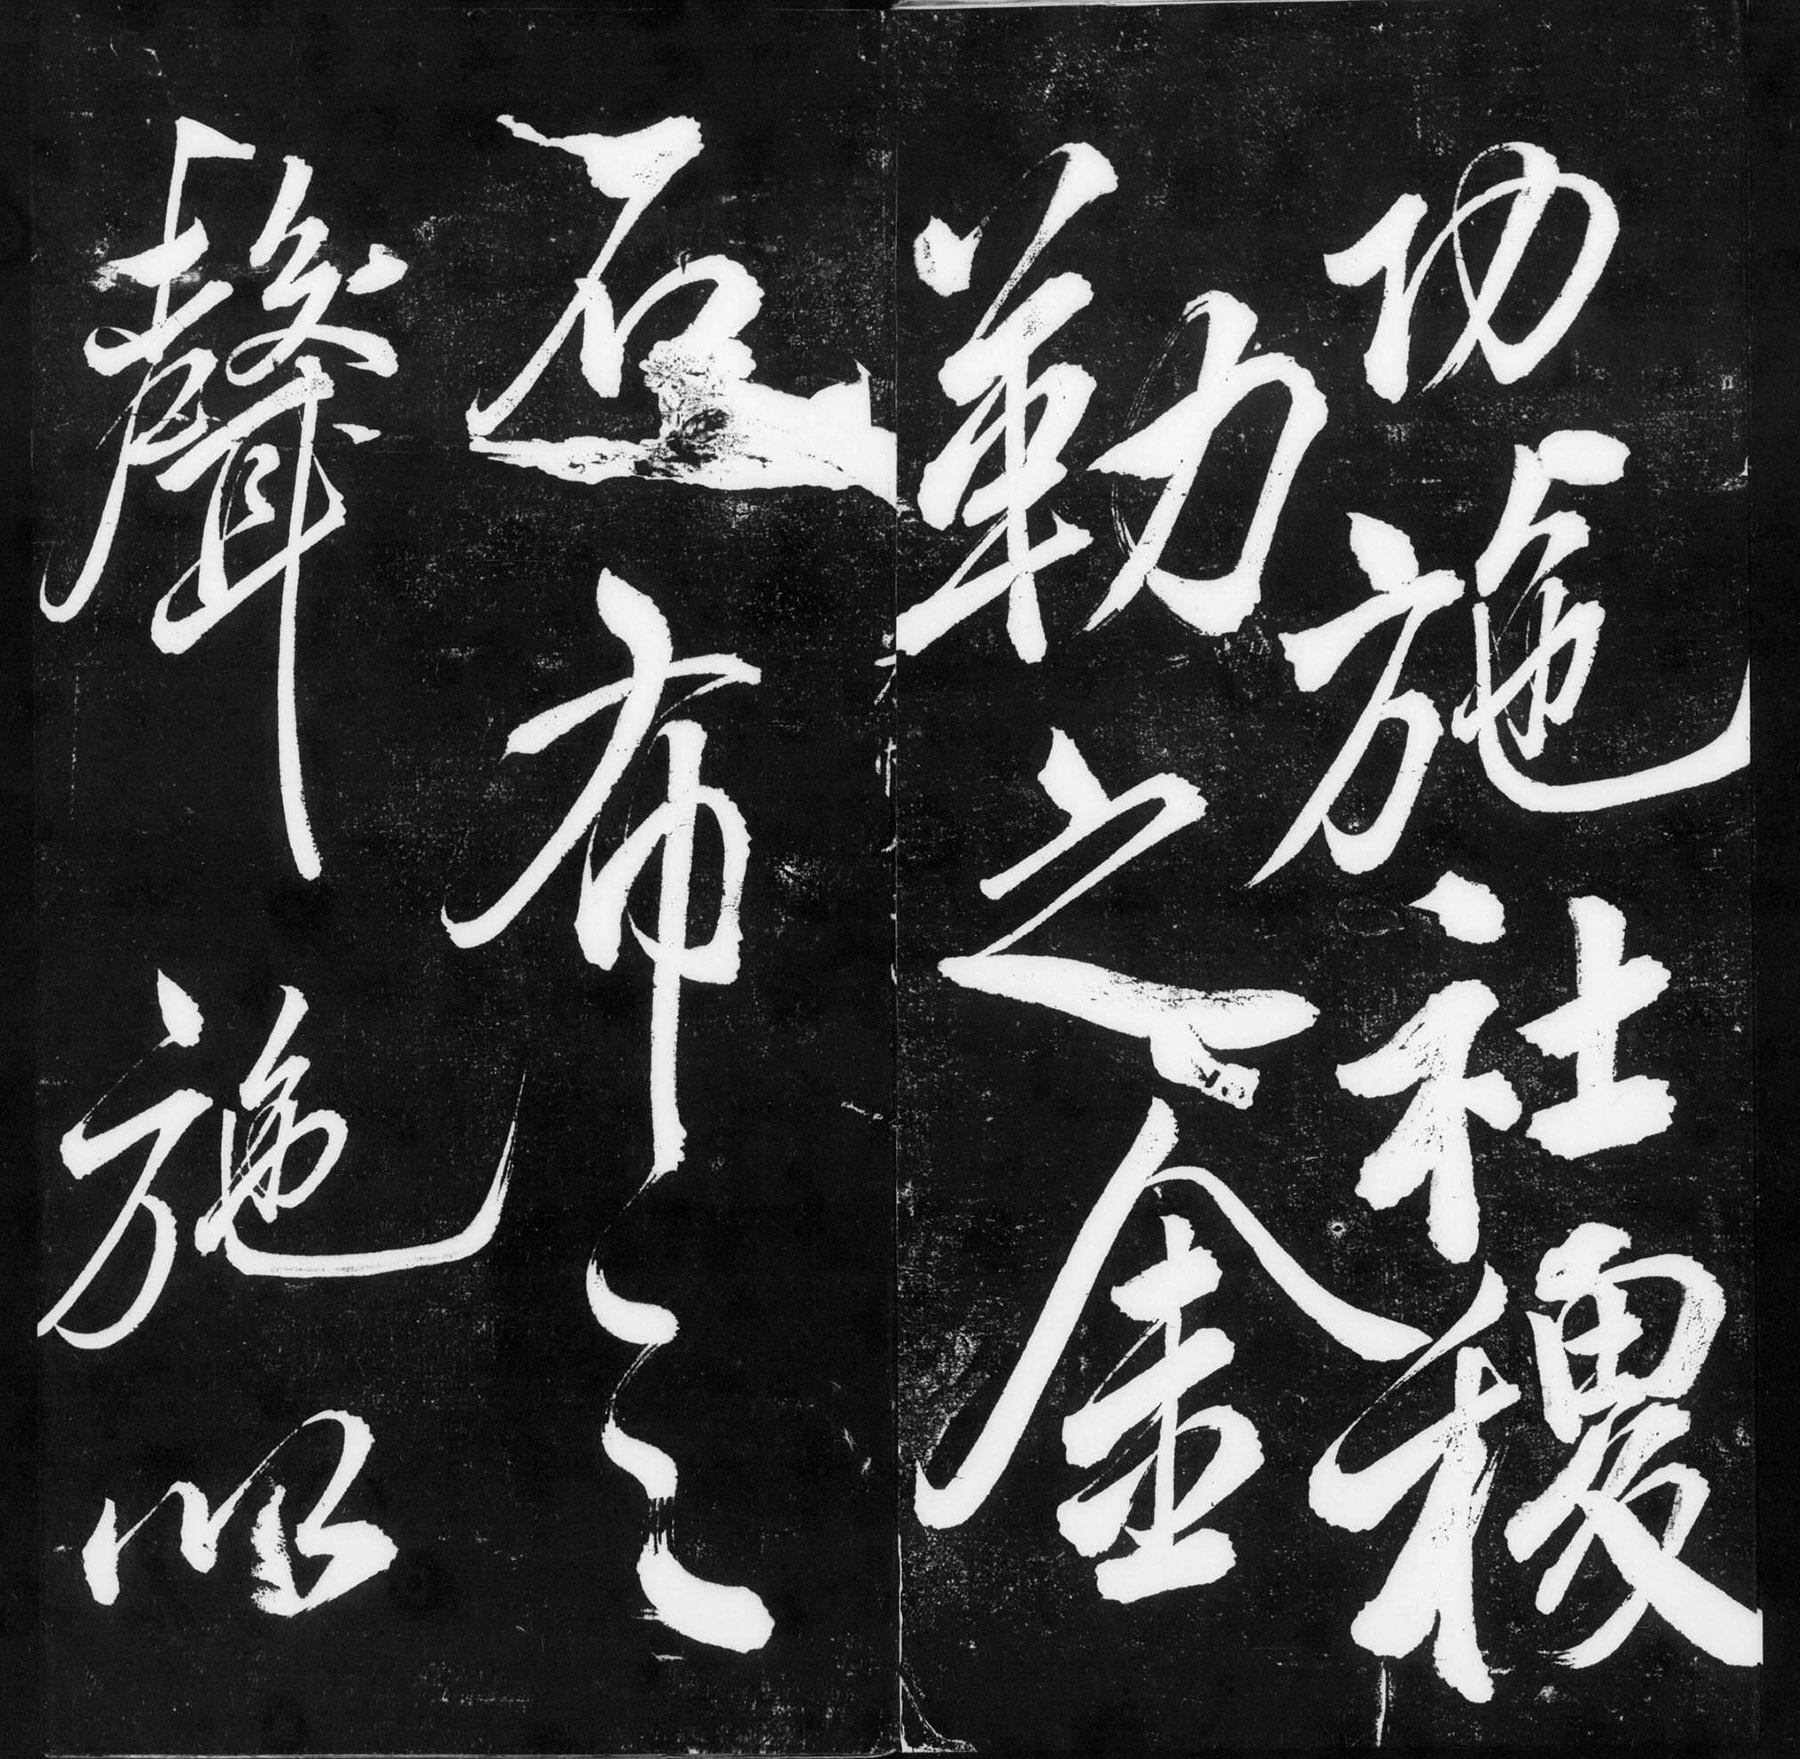 功施社稷
勒之金
石布之
聲施以